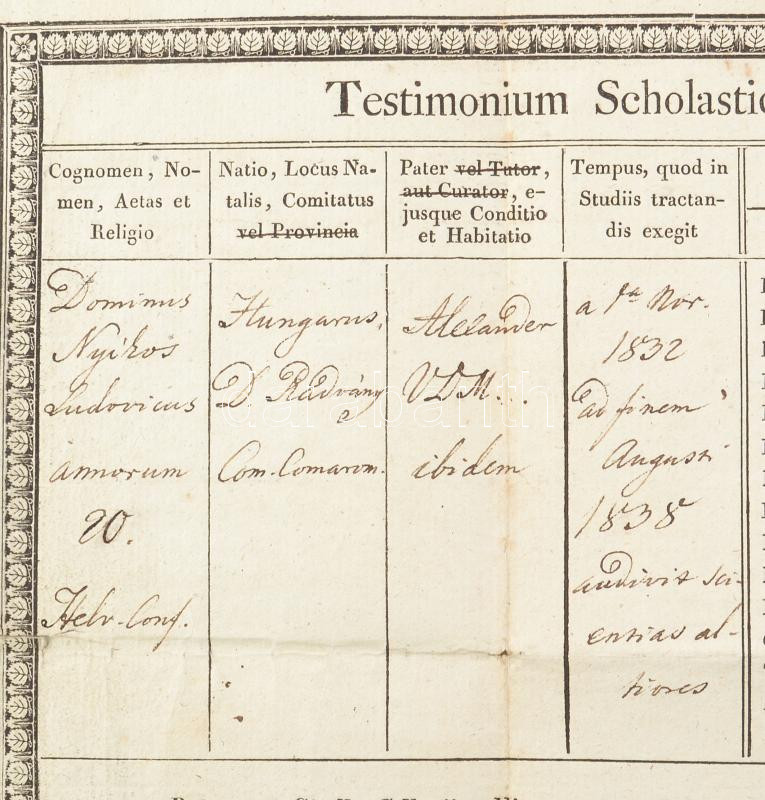 Testimonium Scholastic
Cognomen, No-
men, Aetas et
Religio
Natio, Locus Na-
talis, Comitatus
vel Provincia
Pater vel Tutor,
aut Curator, e-
jusque Conditio
et Habitatio
Tempus, quod in
Studiis tractan-
dis exegit
Dominus
Nyikos
Ludovicus
annorum
20.
Helv. Conf.
Hungarus,
D Radvány
Com. Comarom.
Alexander
VDM...
ibidem
a 1a Nov.
1832
ad finem
Augusti
1838
audivit sci-
entias al-
tiores
darabanth